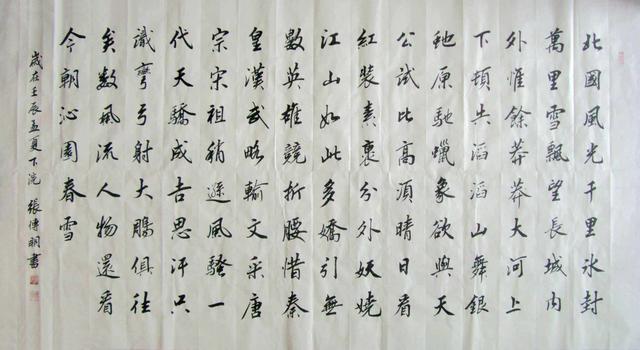 北國風光千里冰封
萬里雪飄望長城内
外惟餘莽莽大河上
下頓失滔滔山舞銀
蛇原馳蠟象欲與天
公試比高須晴日看
紅裝素裹分外妖嬈
江山如此多嬌引無
數英雄競折腰惜秦
皇漢武略輸文采唐
宗宋祖稍遜風騷一
代天驕成吉思汗只
識彎弓射大鵰俱往
矣數風流人物還看
今朝沁園春雪
歲在壬辰孟夏下浣 張傳書